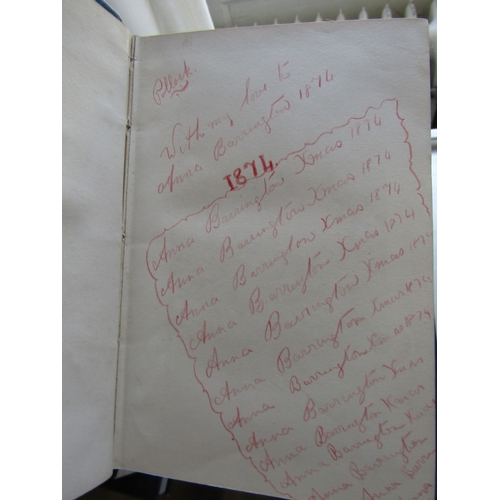 Pollock.
With my love to
Anna Barrington 1874
1874.
Anna Barrington Xmas 1874
Anna Barrington Xmas 1874
Anna Barrington Xmas 1874
Anna Barrington Xmas 1874
Anna Barrington Xmas 1874
Anna Barrington Xmas 1874
Anna Barrington 1874
Anna Barrington Xmas
Anna Barrington Xmas
Anna Barrington Xmas
Anna Barrington
Anna